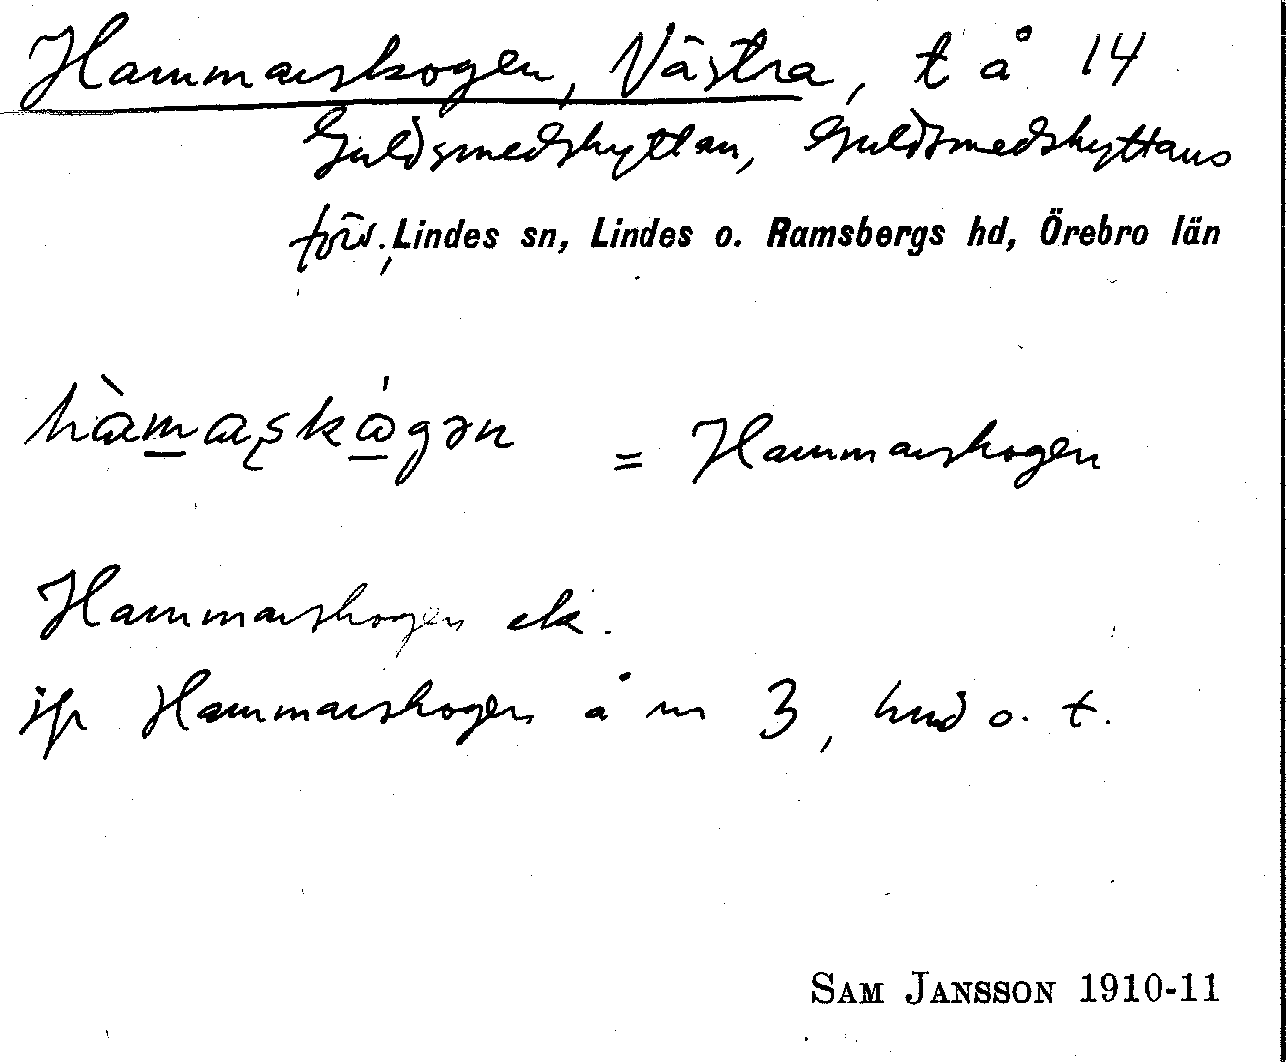 Hammarskogen, Västra, t å 14
Guldsmedshyttan, Guldsmedshyttans
förs., Lindes sn, Lindes o. Ramsbergs hd, Örebro län
hàmaşkágən = Hammarskogen
Hammarskogen ek.
jfr Hammarskogen å nr 3, hmd o. t.
SAM JANSSON 1910-11